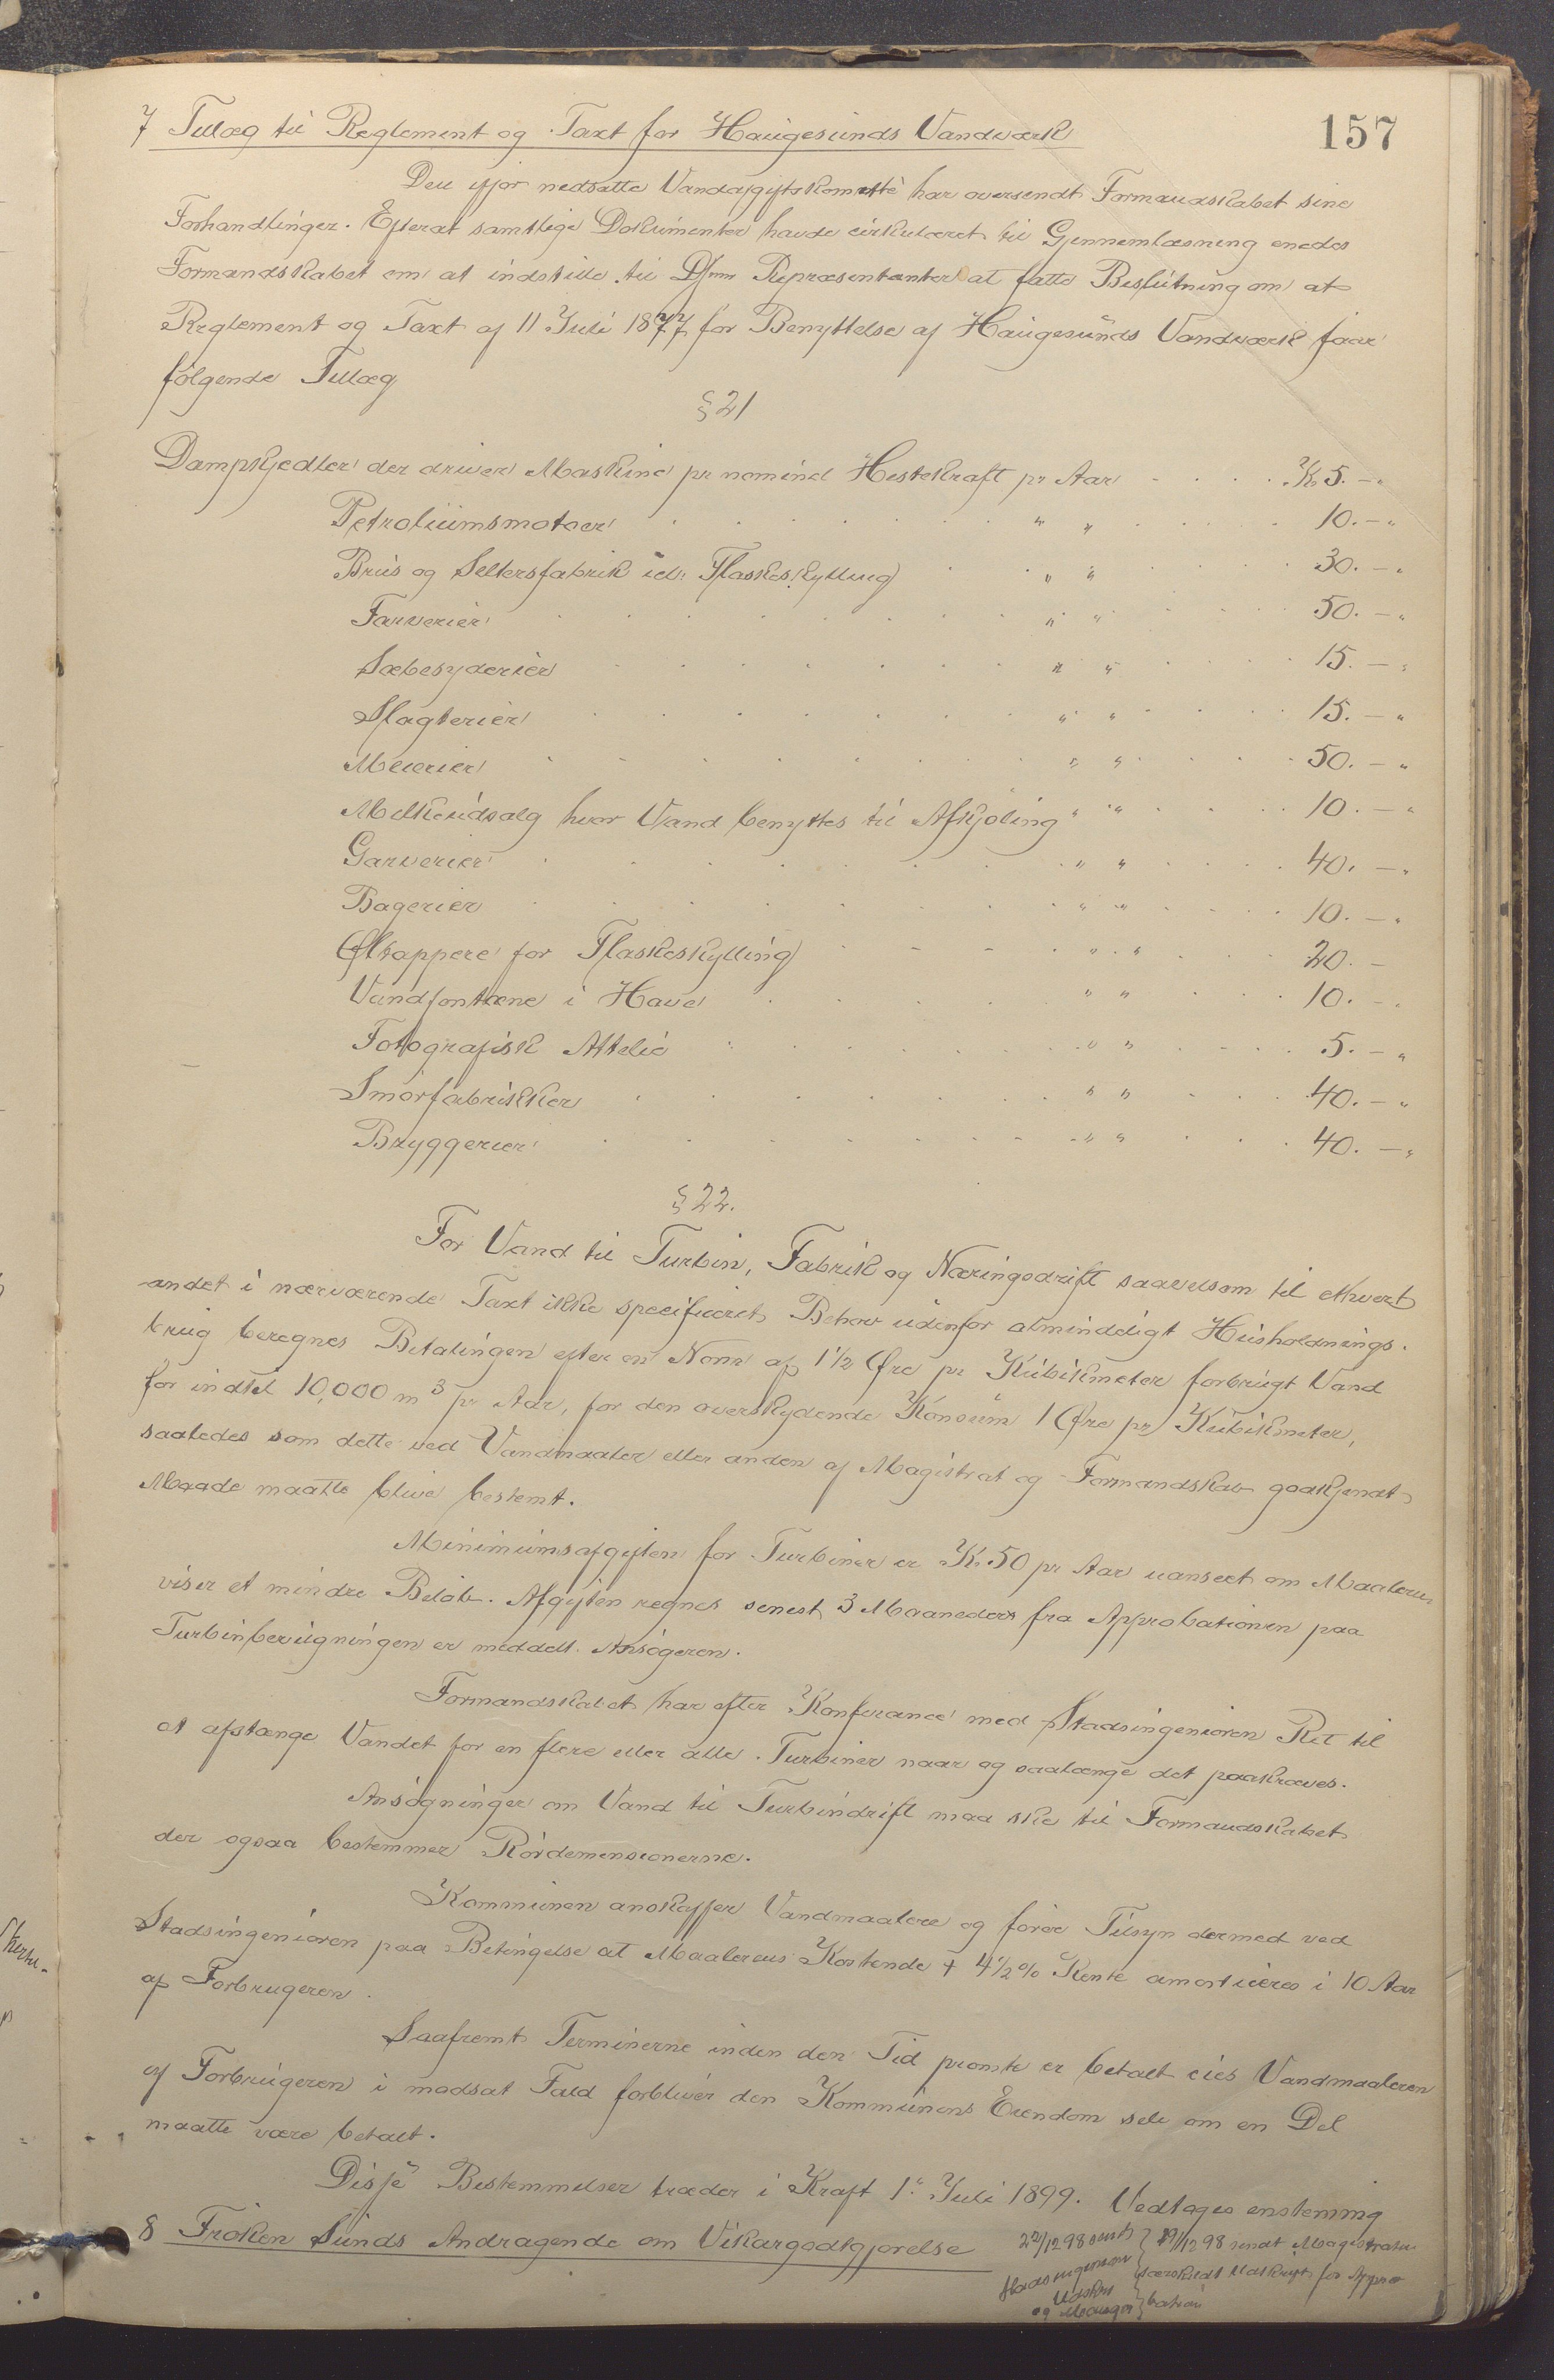 157
7 Tillæg til Reglement og Taxt for Haugesunds Vandværk
Den ifjor nedsatte Vandafgiftskomitte har oversendt Formandskabet sine
Forhandlinger. Efterat samtlige Dokumenter havde cirkuleret til Gjennemlæsning enedes
Formandskabet om at indstille til Repræsentanter at fatte Beslutning om at
Reglement og Taxt af 11 Juli 1877 for Benyttelse af Haugesunds Vandværk faar
følgende Tillæg
§ 21
Dampkjedler der driver Maskine pr nominel Hestekraft pr Aar . . . . Kr. 5. - "
Petroliumsmotoer . . . . . " " . . . . 10. - "
Brus og Seltersfabrik id: Flaskeskylling . . " " . . . . 30. - "
Farverier . . . . . " " . . . . 50. - "
Sæbesyderier . . . . . " " . . . . 15. - "
Slagterier . . . . . " " . . . . 15. - "
Meierier . . . . . " " . . . . 50. - "
Melkeudsalg hvor Vand benyttes til Afkjøling " " . . . . 10. - "
Garverier . . . . . " " . . . . 40. - "
Bagerier . . . . . " " . . . . 10. - "
Øltappere for Flaskeskylling . - - . " " . . . 20. -
Vandfontæne i Have . . . . " " . . . 10. - "
Fotografisk Attelie . . . . " " . . . 5. - "
Smörfabrikker . . . . . " " . . . 40. - "
Bryggerier . . . . . " " . . . 40. - "
§ 22.
For Vand til Turbin, Fabrik og Næringsdrift saavelsom til ethvert
andet i nærværende Taxt ikke specificeret Behov udenfor almindeligt Husholdnings-
brug beregnes Betalingen efter en Norm af 1 1/2 Øre pr Kubikmeter forbrugt Vand
for indtil 10,000 m3 pr Aar, for den overskydende Konsum 1 Øre pr Kubikmeter,
saaledes som dette ved Vandmaaler eller anden af Magistrat og Formandskab godkjendt
Maade maatte blive bestemt.
Minimumsafgiften for Turbiner er Kr. 50 pr Aar uanseet om Maaleren
viser et mindre Beløb. Afgiften regnes senest 3 Maaneder fra Approbationen paa
Turbinbevilgningen er meddelt Ansøgeren.
Formandskabet har efter Konferance med Stadsingeniøren Ret til
at afstænge Vandet for en flere eller alle Turbiner naar og saalænge det paakræves.
Ansøgninger om Vand til Turbindrift maa ske til Formandskabet
der ogsaa bestemmer Rördemensionerne.
Kommunen anskaffer Vandmaalere og fører Tilsyn dermed ved
Stadsingeniøren paa Betingelse at Maalerens Kostende + 4 1/2 % Rente amorticeres i 10 Aar
af Forbrugeren.
Saafremt Terminerne inden den Tid promte er betalt eies Vandmaaleren
af Forbrugeren i modsat Fald forbliver den Kommunens Eiendom selv om en Del
maatte være betalt.
Disse Bestemmelser træder i Kraft 1. Juli 1899. Vedtages enstemmig
8 Frøken Sunds Andragende om Vikargodtgjørelse
22/12 98 sendt Stadsingeniøren Udskr.
29/12 98 sendt Magistraten særskildt Udskrift for Appro-
bation